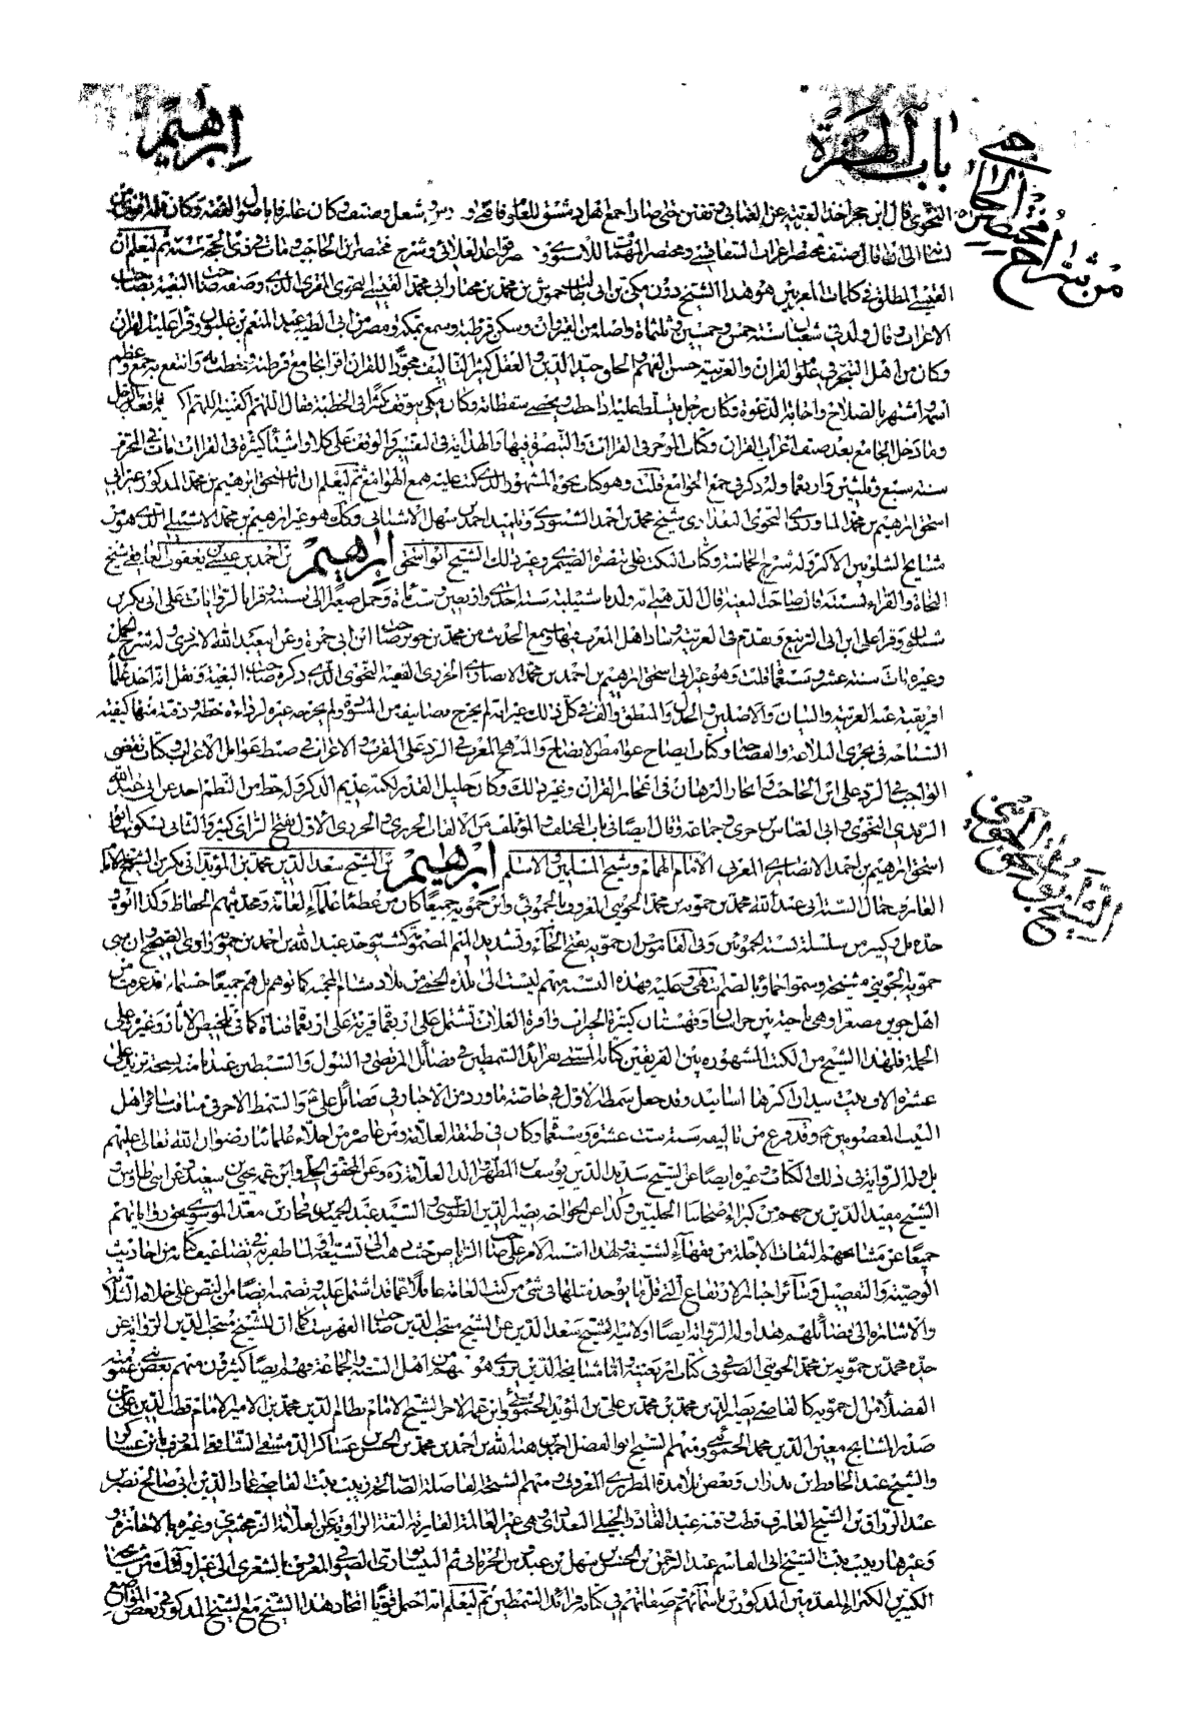 باب الهمزة
ابرهيم
من شراح مختصر الحاجبي
النحوي قال ابن حجر اخذ العربية عن العنابي وتفنن حتى صار اجمع اهل دمشق للعلم فافتى ودرس وشغل وصنف وكان عارفا باصول الفقه وكان
الى ان قال صنف مختصر اعراب السفاقسي ومختصر المهمات للاسنوي قواعد العلائي وشرح مختصر ابن الحاجب ومات في ذي الحجة سنة ثم ليعلم ان
القيسي المطلق في كلمات المعربين هو هذا الشيخ دون مكي بن ابي طالب حموش بن محمد بن مختار ابي محمد القيسي النحوي المقري الذي وصفه صاحب البغية بصاحب
الاعراب وقال ولد في شعبان سنة خمس وخمسين وثلثمائة واصله من القيروان وسكن قرطبة وسمع بمكة ومصر من ابي الطيب عبد المنعم بن غلبون وقرأ عليه القران
وكان من اهل التبحر في علوم القران والعربية حسن الفهم والخلق جيد الدين والعقل كثير التاليف مجودا للقران اقرأ بجامع قرطبة وخطب به وانتفع به جمع وعظم
اسمه واشتهر بالصلاح واجابة الدعوة وكان رجل يتسلط عليه اذا خطب ويحصي سقطاته وكان مكي يتوقف كثيرا في الخطبة فقال اللهم اكفنيه اللهم اكفنيه فاقعد الرجل
وما دخل الجامع بعد صنف اعراب القران وكتاب الموجز في القراآت والتبصرة فيها والهداية في التفسير والوقف على كلا واشياء كثيرة في القراآت مات في المحرم
سنة سبع وثلثين واربعمائة وله ذكر في جمع الجوامع قلت وهو كتاب نحوه المشهور الذي كتب عليه همع الهوامع ثم ليعلم ان ابا اسحق ابرهيم بن محمد المذكور غير ابي
اسحق ابرهيم بن محمد الماوردي النحوي البغدادي شيخ محمد بن احمد الشنبوذي وتلميذ احمد بن سهل الاشناني وكذلك هو غير ابرهيم بن محمد الاشبيلي الذي هو من
مشايخ الشلوبين الاكبر وله شرح الحماسة وكتاب النكت على تبصرة الصيمري وغير ذلك الشيخ ابو اسحق ابرهيم بن احمد بن عيسى بن يعقوب الغافقي شيخ
النحاة والقراء بسبتة قال صاحب البغية قال الذهبي انه ولد باشبيلية سنة احدى واربعين وستمائة وحمل صغيرا الى سبتة وقرأ بالروايات على ابي بكر بن
وقرأ على ابن ابي الربيع وتقدم في العربية وساد اهل المغرب فيها وسمع الحديث من محمد بن جوبر صاحب ابن ابي جمرة وعن ابي عبد الله الازدي وله شرح الجمل
وغيره مات سنة عشر وسبعمائة قلت وهو غير ابي اسحق ابرهيم بن احمد بن محمد الانصاري الخزرجي الفقيه النحوي الذي ذكره صاحب البغية ونقل انه اخذ علماء
افريقية عنه العربية والبيان والاصلين والجدل والمنطق والف في كل ذلك غير انه لم يخرج تصانيفه من المسودة ولم يخرجه غيره لرداءة خطه ودقته منها كيفية
السباحة في بحري البلاغة والفصاحة وكتاب ايضاح غوامض الايضاح والمنهج المعرب في الرد على المقرب والاغراب في ضبط عوامل الاعراب وكتاب تقضي
الواجب في الرد على ابن الحاجب وايجاز البرهان في اعجاز القران وغير ذلك وكان جليل القدر لكنه عديم الذكر وله حظ من النظم اخذ عن ابي عبد الله
الرندي النحوي وابي العباس جري وجماعة وقال ايضا في باب المختلف والمؤتلف من الالقاب الجزري والجزري الاول بفتح الزاي كثير والثاني بسكونها ابو
اسحق ابرهيم بن احمد الانصاري المغربي الامام الهمام وشيخ المسلمين والاسلام ابرهيم بن الشيخ سعد الدين محمد بن المؤيد ابي بكر بن الشيخ الامام
الشيخ ابو اسحق ابرهيم الحمويني
العارف جمال السنة ابي عبد الله محمد بن حمويه بن محمد الجويني المعروف بالحموئي وابن حمويه جميعا كان من عظماء علماء العامة ومحدثيهم الحفاظ وكذا ابوه و
جده بل وكثير من سلسلة نسبه الحمويين وفي القاموس ان حمويه بفتح الحاء وتشديد الميم المضمومة كشبويه جد عبد الله بن احمد بن حمويه راوي الصحيح وان بني
حمويه الجويني مشيخة وسموا حما وبالضم انتهى وعليه فهذه النسبة منهم ليست الى بلدة الحمى من بلاد شام المحمية كما توهم بل هم جميعا حسبما قد عرفت من
اهل جوين مصغرا وهي ناحية بين خراسان وقهستان كثيرة الخيرات وافرة الغلات تشتمل على اربعمائة قرية على اربعمائة قناة كما في تلخيص الاثار وغيره وعلى
الجملة فلهذا الشيخ من الكتب المشهورة بين الفريقين كتابه المسمى بفرائد السمطين في فضائل المرتضى والبتول والسبطين عندنا منه نسخة تزيد على
عشرة الاف بيت سيد ان اكثرها اسانيد وقد جعل سمطه الاول في خاصة ما ورد من الاخبار في فضائل علي والسمط الاخر في مناقب سائر اهل
البيت المعصومين وقد فرغ من تاليفه سنة ست عشرة وسبعمائة وكان في طبقة العلامة ومن عاصره من اجلاء علمائنا رضوان الله تعالى عليهم
بل وله الرواية في ذلك الكتاب وغيره ايضا عن الشيخ سديد الدين يوسف بن المطهر والد العلامة ره وعن المحقق الحلي وابن عمه يحيى بن سعيد وعن ابني طاوس و
الشيخ مفيد الدين بن جهم من كبراء اصحابنا الحليين وكذا عن الخواجه نصير الدين الطوسي والسيد عبد الحميد بن فخار بن معد الموسوي بحق رواياتهم
جميعا عن مشايخهم الثقات الاجلة من فقهاء الشيعة ولهذا اشتبه الامر على صاحب الرياض حتى ذهب الى تشيعه او لما ظفر به في تضاعيف كتابه من احاديث
الوصية والتفضيل وسائر اخبار الارتفاع التي قل ما يوجد مثلها في شئ من كتب العامة غافلا عما قد اشتمل عليه وتضمنه ايضا من النص على خلافة الثلاثة
والاشارة الى فضائلهم هذا وله الرواية ايضا بالاسناد لشيخ سعد الدين عن الشيخ منتجب الدين صاحب الفهرست كما ان للشيخ منتجب الدين الرواية عن
جده محمد بن حمويه بن محمد الجويني الصوفي في كتاب اربعينه واما مشايخه الذين يروي هو عنهم من اهل السنة والجماعة فهم ايضا كثيرون منهم بعض بني عمومته
الفضلاء من ال حمويه كالقاضي نصير الدين محمد بن محمد بن علي بن المؤيد الحموئي وابن عمه الاخر الشيخ الامام نظام الدين محمد بن الامير الامام قطب الدين علي بن
صدر المشايخ معين الدين محمد الحموئي ومنهم الشيخ ابو الفضل احمد بن هبة الله بن احمد بن محمد بن الحسن بن عساكر الدمشقي الشافعي المعروف بابن عساكر
والشيخ عبد الحافظ بن بدران وبعض تلامذة المطرزي المعروف ومنهم الشيخة الفاضلة الصالحة زينب بنت القاضي عماد الدين ابي صالح نصر بن
عبد الرزاق بن الشيخ العارف قطب وقته عبد القادر الجيلي البغدادي وهي غير العالمة الفايزة الثقة الراوية عن العلامة الزمخشري وغيره بالاجازة و
وغيرها زينب بنت الشيخ ابي القاسم عبد الرحمن بن الحسن بن سهل بن عبدوس الجرجاني ثم النيسابوري الصوفي المعروف بالشعري الى غير اولئك من مشيخته
الكثيرين الكبراء المقدمين المذكورين باسمائهم وصفاتهم في كتابه فرائد السمطين ثم ليعلم انه احتمل قويا اتحاد هذا الشيخ مع الشيخ المذكور في بعض المواضع